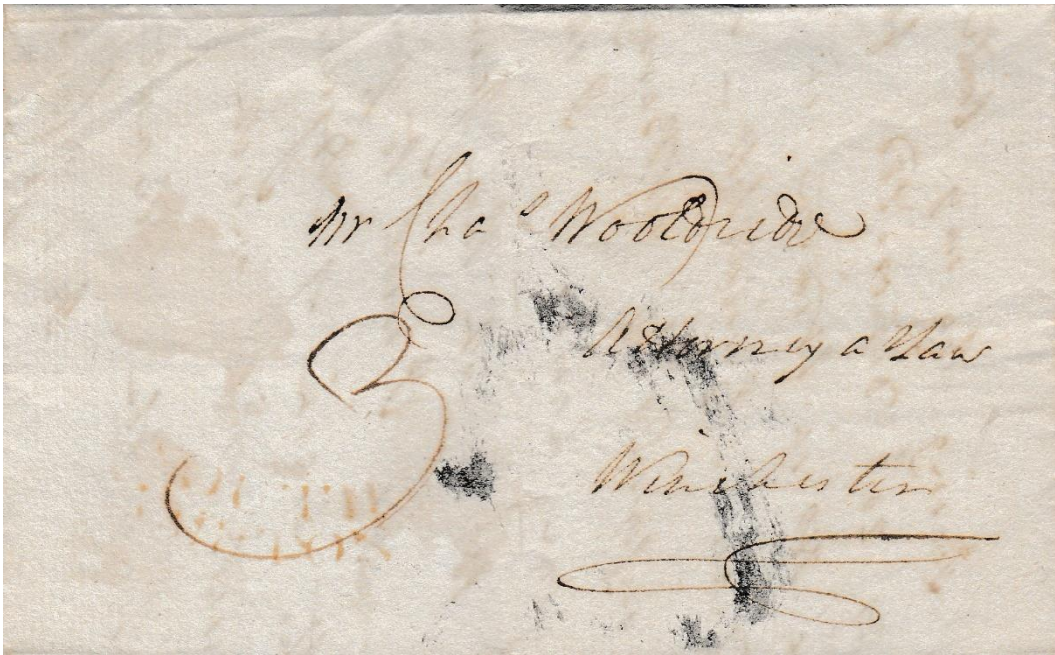 Mr Chas Wooldridge
3
Attorney at Law
Winchester